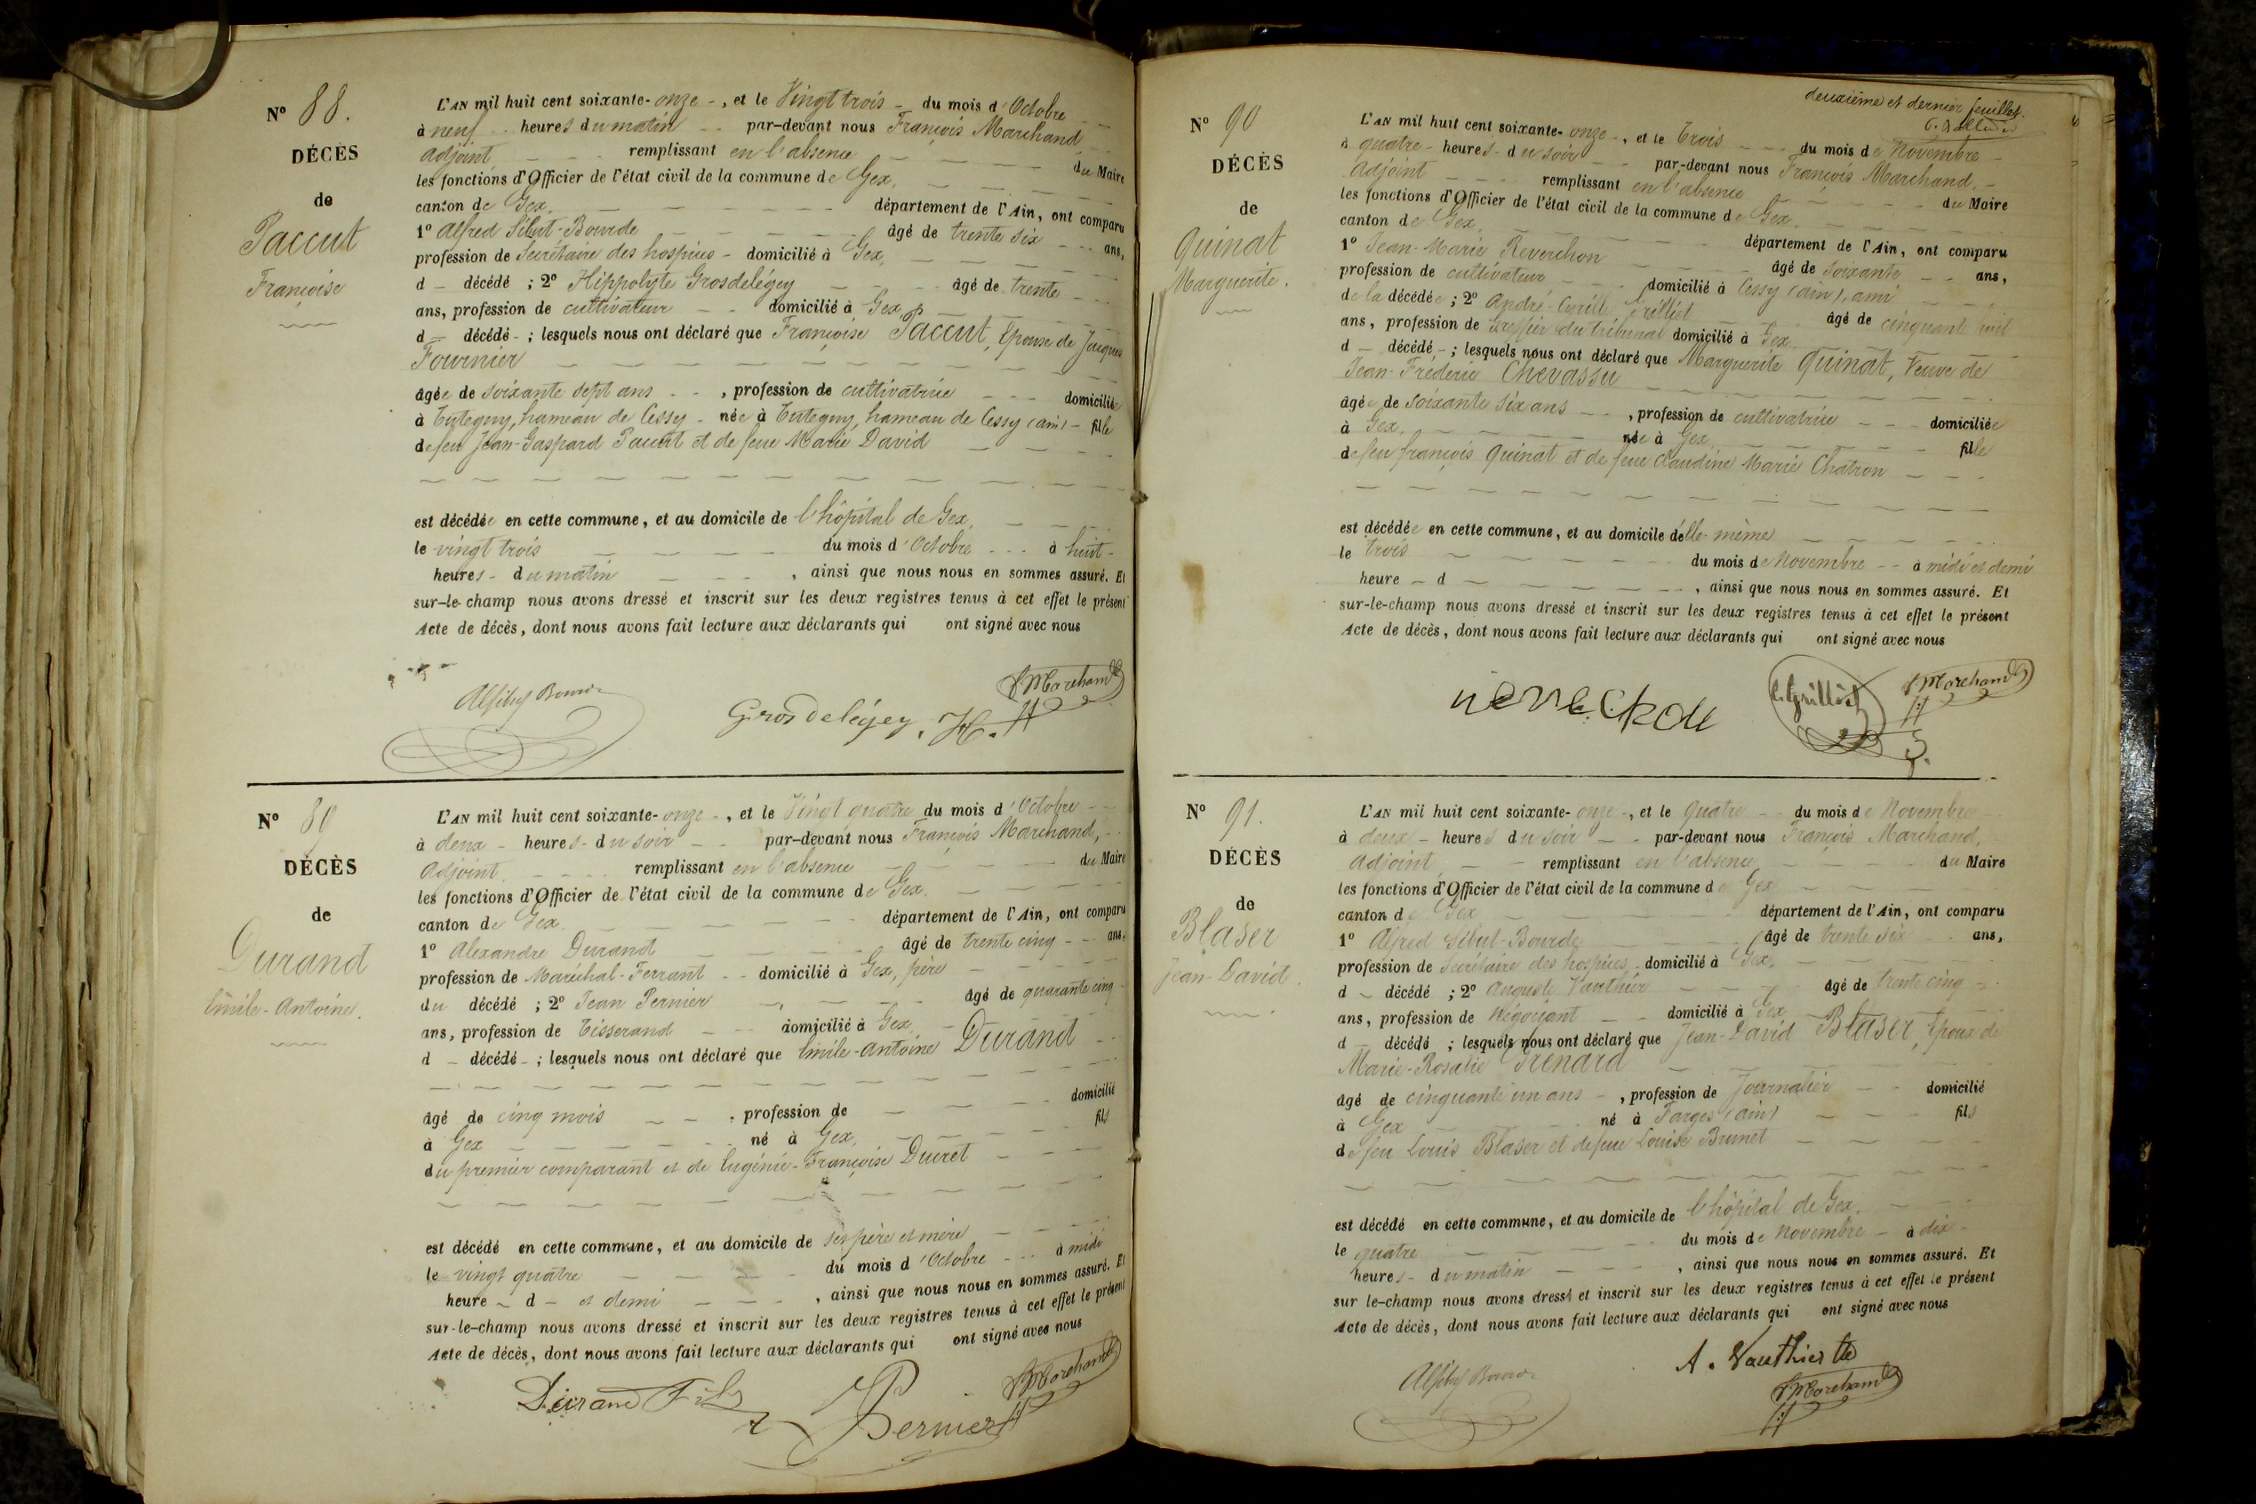 N° 88.
DÉCÈS
de
Paccut
Françoise
L'AN mil huit cent soixante-onze, et le Vingt trois du mois d'Octobre
à neuf heures du matin par-devant nous François Marchand
adjoint remplissant en l'absence du Maire
les fonctions d'Officier de l'état civil de la commune de Gex,
canton de Gex, département de l'Ain, ont comparu
1° Alfred Sibut-Bourde âgé de trente six ans,
profession de Secrétaire des hospices domicilié à Gex,
d décédé ; 2° Hippolyte Grosdelégey âgé de trente
ans, profession de cultivateur domicilié à Gex
d décédé ; lesquels nous ont déclaré que Françoise Paccut, Epouse de Jacques
Fournier
âgée de soixante sept ans, profession de cultivatrice domiciliée
à Tutegny, hameau de Cessy née à Tutegny, hameau de Cessy (ain) fille
de feu Jean-Gaspard Paccut et de feue Marie David
est décédée en cette commune, et au domicile de l'hôpital de Gex,
le vingt trois du mois d'Octobre à huit
heures du matin, ainsi que nous nous en sommes assuré. Et
sur-le-champ nous avons dressé et inscrit sur les deux registres tenus à cet effet le présent
Acte de décès, dont nous avons fait lecture aux déclarants qui ont signé avec nous
Grosdelégey. H.
F Marchand
N° 89
DÉCÈS
de
Durand
Emile-Antoine.
L'AN mil huit cent soixante-onze, et le Vingt quatre du mois d'Octobre
à deux heures du soir par-devant nous François Marchand,
adjoint remplissant en l'absence du Maire
les fonctions d'Officier de l'état civil de la commune de Gex.
canton de Gex département de l'Ain, ont comparu
1° Alexandre Durand âgé de trente cinq ans,
profession de Maréchal-Ferrant domicilié à Gex, père
du décédé ; 2° Jean Pernier âgé de quarante cinq
ans, profession de Tisserand domicilié à Gex
d décédé ; lesquels nous ont déclaré que Emile-Antoine Durand
âgé de cinq mois, profession de domicilié
à Gex né à Gex, fils
du premier comparant et de Eugénie-Françoise Ducret
est décédé en cette commune, et au domicile de ses père et mère
le vingt quatre du mois d'Octobre à midi
heure d et demi, ainsi que nous nous en sommes assuré. Et
sur-le-champ nous avons dressé et inscrit sur les deux registres tenus à cet effet le présent
Acte de décès, dont nous avons fait lecture aux déclarants qui ont signé avec nous
Durand Fils
Pernier
F Marchand
deuxième et dernier feuillet.
N° 90
DÉCÈS
de
Quinat
Marguerite.
L'AN mil huit cent soixante-onze, et le Trois du mois de Novembre
à quatre heures du soir par-devant nous François Marchand.
Adjoint remplissant en l'absence du Maire
les fonctions d'Officier de l'état civil de la commune de Gex.
canton de Gex, département de l'Ain, ont comparu
1° Jean-Marie Reverchon âgé de soixante ans,
profession de cultivateur domicilié à Cessy (ain), ami
de la décédée ; 2° André-Cyrille Grilliet âgé de cinquant huit
ans, profession de Greffier du tribunal domicilié à Gex
d décédé ; lesquels nous ont déclaré que Marguerite Quinat, Veuve de
Jean-Fréderic Chevassu
âgée de soixante six ans, profession de cultivatrice domiciliée
à Gex. née à Gex fille
de feu françois Quinat et de feue Claudine Marie Chatron
est décédée en cette commune, et au domicile d'elle-même
le trois du mois de Novembre à midi et demi
heure d, ainsi que nous nous en sommes assuré. Et
sur-le-champ nous avons dressé et inscrit sur les deux registres tenus à cet effet le présent
Acte de décès, dont nous avons fait lecture aux déclarants qui ont signé avec nous
C. Grilliet
F Marchand
N° 91.
DÉCÈS
de
Blaser
Jean-David.
L'AN mil huit cent soixante-onze, et le Quatre du mois de Novembre
à deux heures du soir par-devant nous François Marchand,
adjoint remplissant en l'absence du Maire
les fonctions d'Officier de l'état civil de la commune de Gex
canton de Gex département de l'Ain, ont comparu
1° Alfred Sibut-Bourde âgé de trente six ans,
profession de Secrétaire des hospices domicilié à Gex.
d décédé ; 2° Auguste Vauthier âgé de trente cinq
ans, profession de Négociant domicilié à Gex
d décédé ; lesquels nous ont déclaré que Jean-David Blaser, Epoux de
Marie-Rosalie Grenard
âgé de cinquante un ans, profession de Journalier domicilié
à Gex né à Farges (ain) fils
de feu Louis Blaser et de feue Louise Brunet
est décédé en cette commune, et au domicile de l'hôpital de Gex.
le quatre du mois de Novembre à dix
heures du matin, ainsi que nous nous en sommes assuré. Et
sur le-champ nous avons dressé et inscrit sur les deux registres tenus à cet effet le présent
Acte de décès, dont nous avons fait lecture aux déclarants qui ont signé avec nous
A. Vauthier
F Marchand